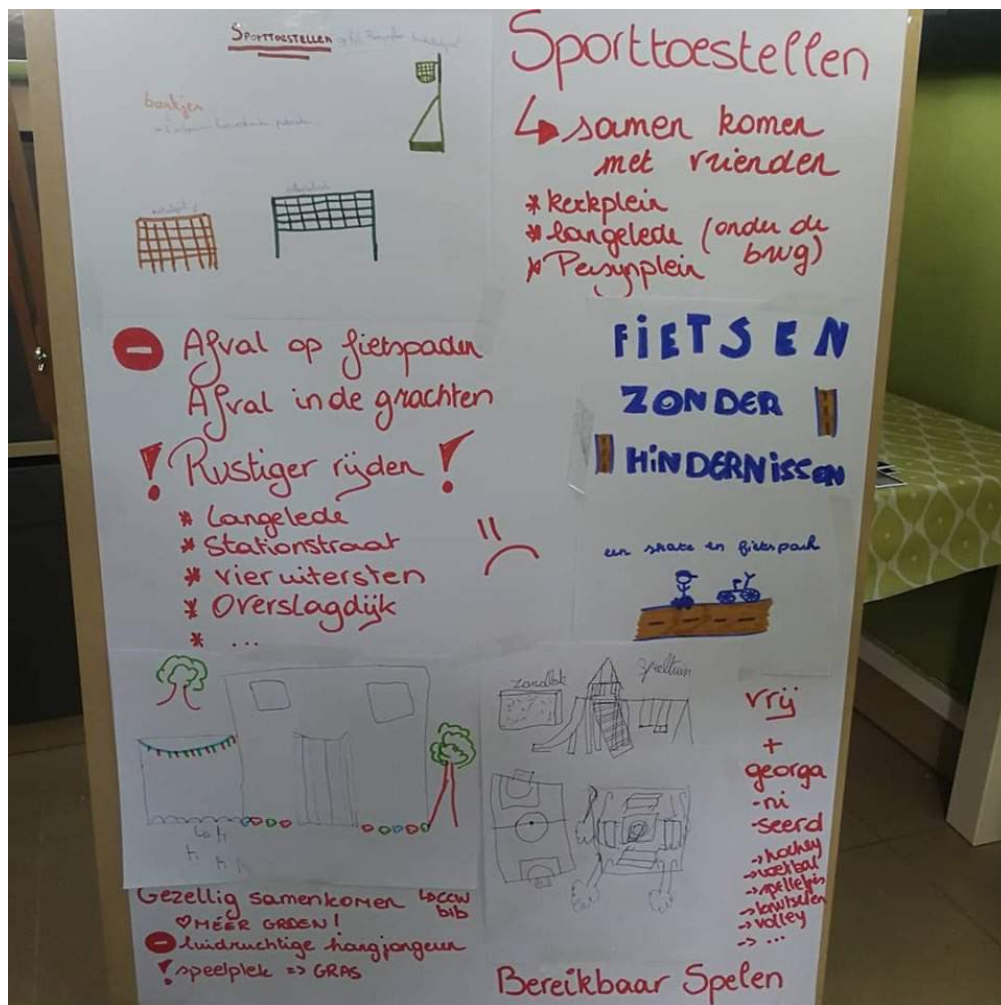 SPORTTOESTELLEN op het
bankjes
Sporttoestellen
↳ samen komen
met vrienden
* kerkplein
* Langelede (onder de
brug)
* Persynplein
Afval op fietspaden
Afval in de grachten
! Rustiger rijden !
* Langelede
* Stationstraat
* vieruitersten
* Overslagdijk
* ...
FiETSEN
ZONDER
HiNDERNiSSEN
een skate en fietspark
zandbak
speeltuin
vrij
+
georga
-ni
-seerd
-> hockey
-> voetbal
-> spelletjes
-> knutselen
-> volley
-> ...
Gezellig samenkomen ↳ccw
bib
♡MÉÉR GROEN!
luidruchtige hangjongeren
! speelplek => GRAS
Bereikbaar Spelen